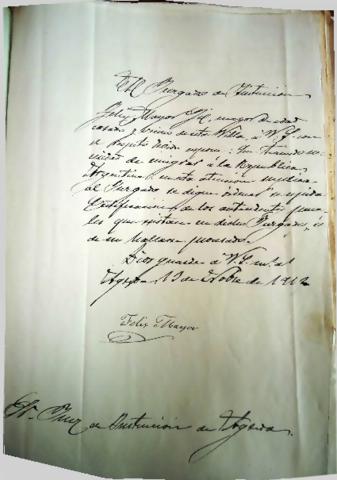 Al Juzgado de Instrucción
Felix Mayor Gil mayor de edad
casado y vecino de esta Villa a V.S. con
el respeto debido expone: Que teniendo ne
cesidad de emigrar á la Republica
Argentina en esta atención suplica
al Juzgado se digne ordenar se expida
Certificación de los antecedentes pena
les que existan en dicho Juzgado, ó
de no hallarse procesado.
Dios guarde a V.S. m. a.
Agreda 19 de Nobre de 1912
Felix Mayor
Sr. Juez de Instrucción de Agreda.